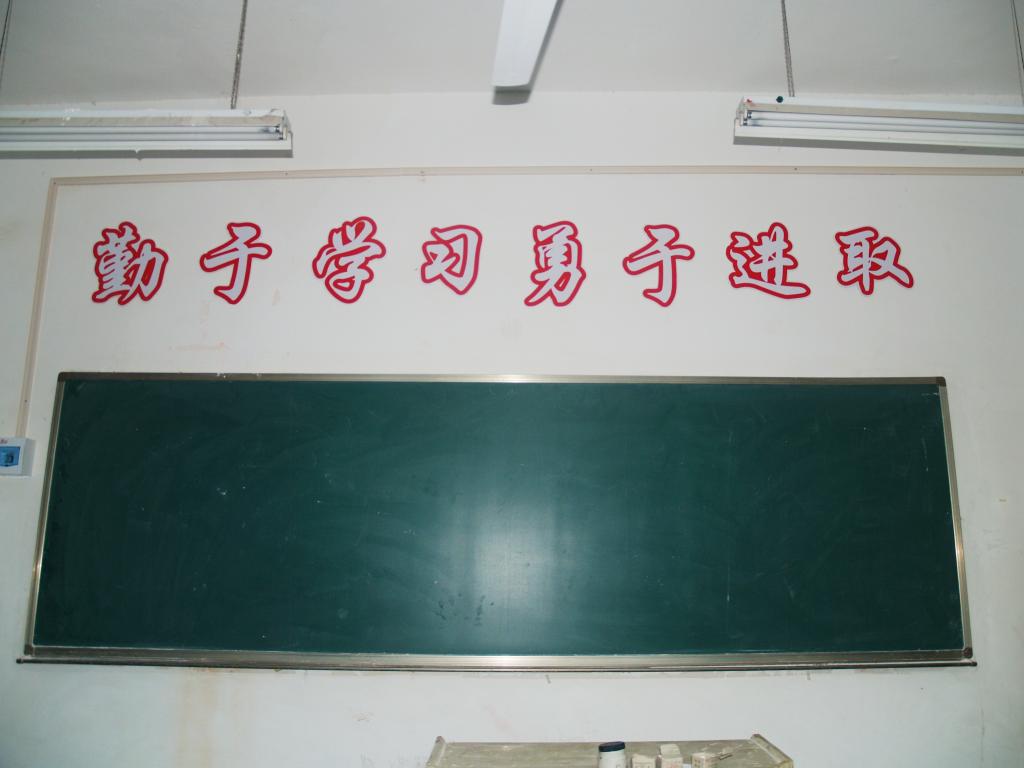 勤于学习勇于进取